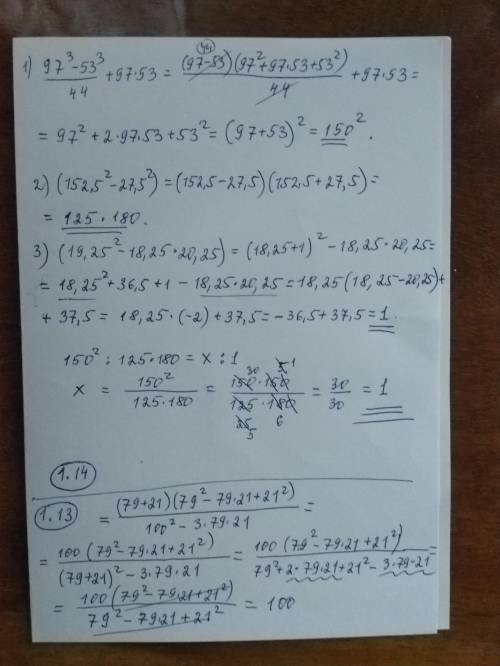 44
1) (97³ - 53³)/44 + 97·53 = (97-53)(97²+97·53+53²)/44 + 97·53 =
= 97² + 2·97·53 + 53² = (97+53)² = 150².
2) (152,5² - 27,5²) = (152,5 - 27,5)(152,5 + 27,5) =
= 125 · 180.
3) (19,25² - 18,25·20,25) = (18,25+1)² - 18,25·20,25 =
= 18,25² + 36,5 + 1 - 18,25·20,25 = 18,25(18,25 - 20,25) +
+ 37,5 = 18,25·(-2) + 37,5 = -36,5 + 37,5 = 1.
150² : 125·180 = x : 1
30 5 1
x = 150²/(125·180) = (150·150)/(125·180) = 30/30 = 1
25 6
5
1.14
1.13 = (79+21)(79² - 79·21 + 21²)/(100² - 3·79·21) =
= 100(79² - 79·21 + 21²)/((79+21)² - 3·79·21) = 100(79² - 79·21 + 21²)/(79² + 2·79·21 + 21² - 3·79·21) =
= 100(79² - 79·21 + 21²)/(79² - 79·21 + 21²) = 100